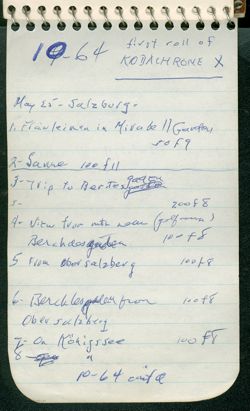 10-64 first roll of
KODACHROME X
May 25 - Salzburg -
1. Fräuleinen in Mirabell Gardens
50 f 9
2- Same 100 f 11
3- Trip to Berchtesgaden
3- 200 f 8
4- View from mtn near
Berchdesgaden 100 f 8
5 From Obersalzberg 100 f 8
6- Berchtesgaden from 100 f 8
Obersalzberg
7- On Königssee 100 f 8
8- "
10-64